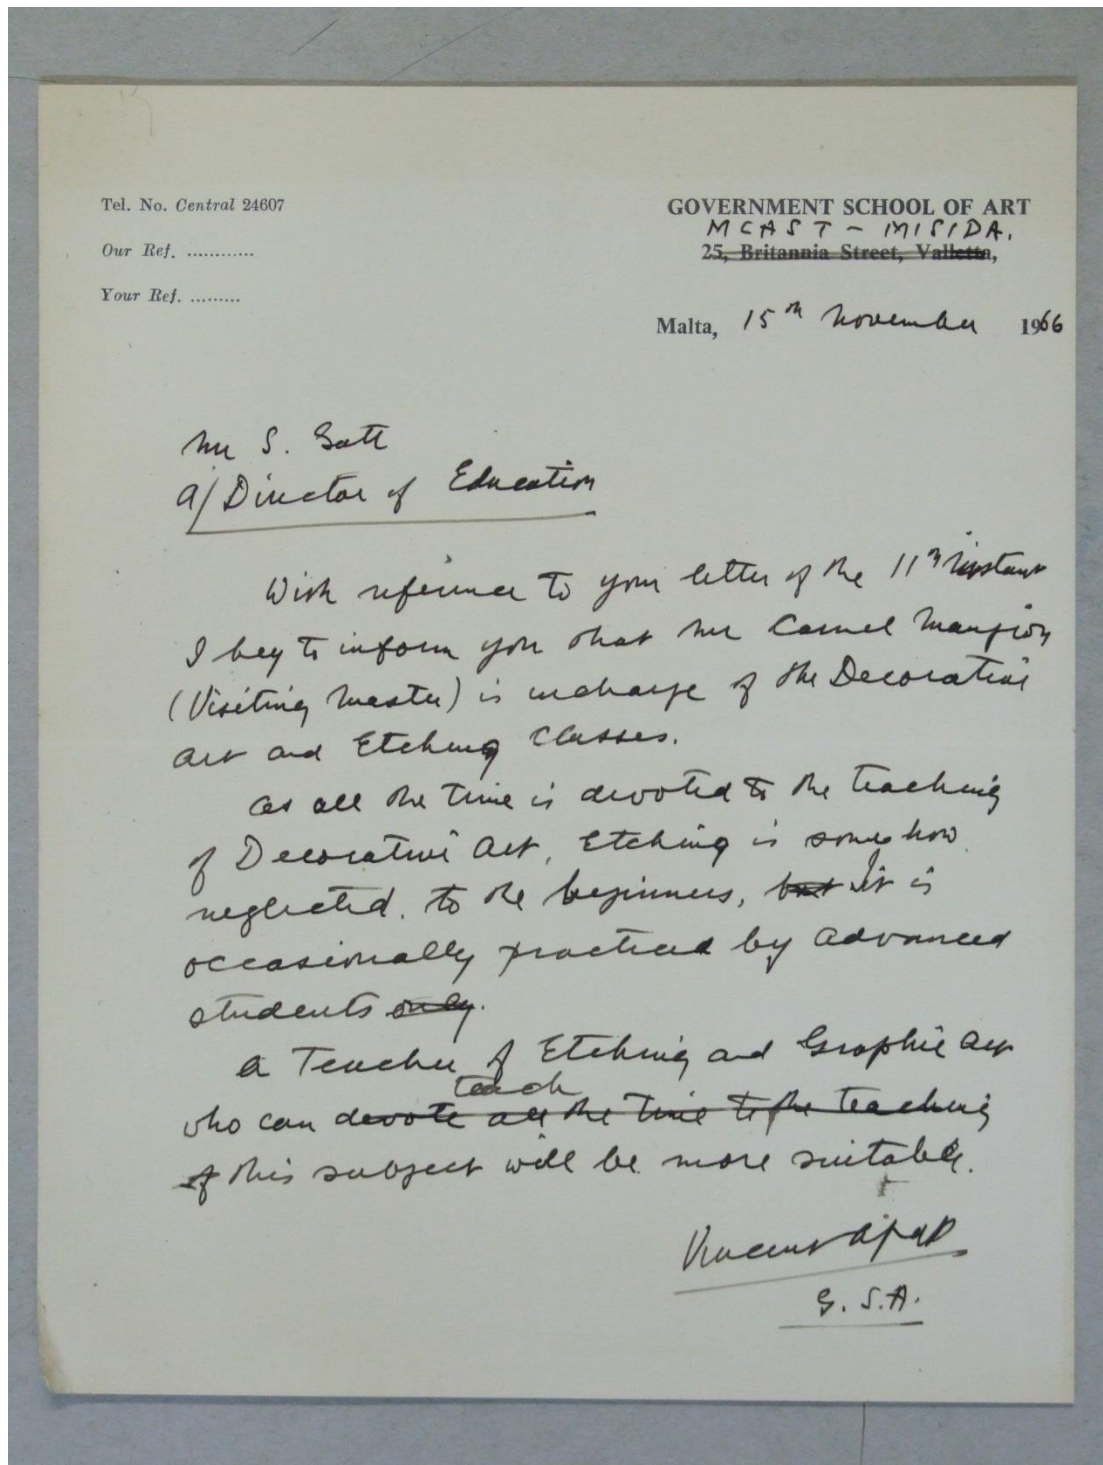 Tel. No. Central 24607
GOVERNMENT SCHOOL OF ART
MCAST - MISIDA.
Our Ref. ............
25, Britannia Street, Valletta,
Your Ref. .........
Malta, 15th November 1966
Mr S. Gatt
a/Director of Education
With reference to your letter of the 11th instant
I beg to inform you that Mr Carmel Mangion
(Visiting Master) is incharge of the Decorative
Art and Etching Classes.
As all the time is devoted to the teaching
of Decorative Art, Etching is somehow
neglected. to the beginners, but it is
occasionally practiced by advanced
students only.
A Teacher of Etching and Graphic Art
teach
who can devote all the time to the teaching
of this subject will be more suitable.
Vincent Apap
G.S.A.